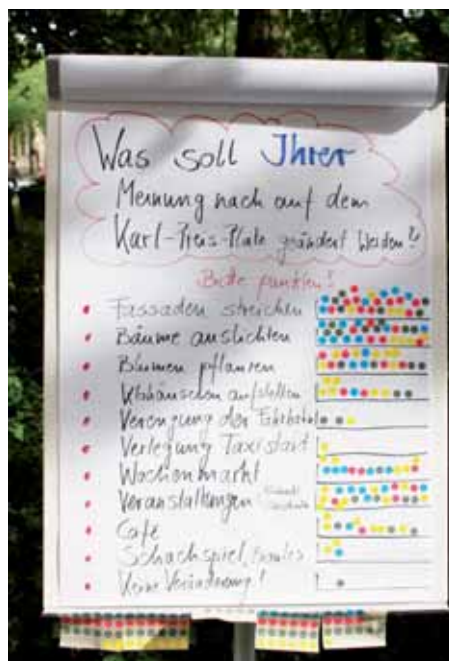 Was soll Ihrer
Meinung nach auf dem
Karl-Preis-Platz geändert werden?
Bitte punkten!
Fassaden streichen
Bäume auslichten
Blumen pflanzen
Klohäuschen aufstellen
Verengung der Fahrbahn
Verlegung Taxistand
Wochenmarkt
Veranstaltungen
Café
Schachspiel, Boules
Keine Veränderung!